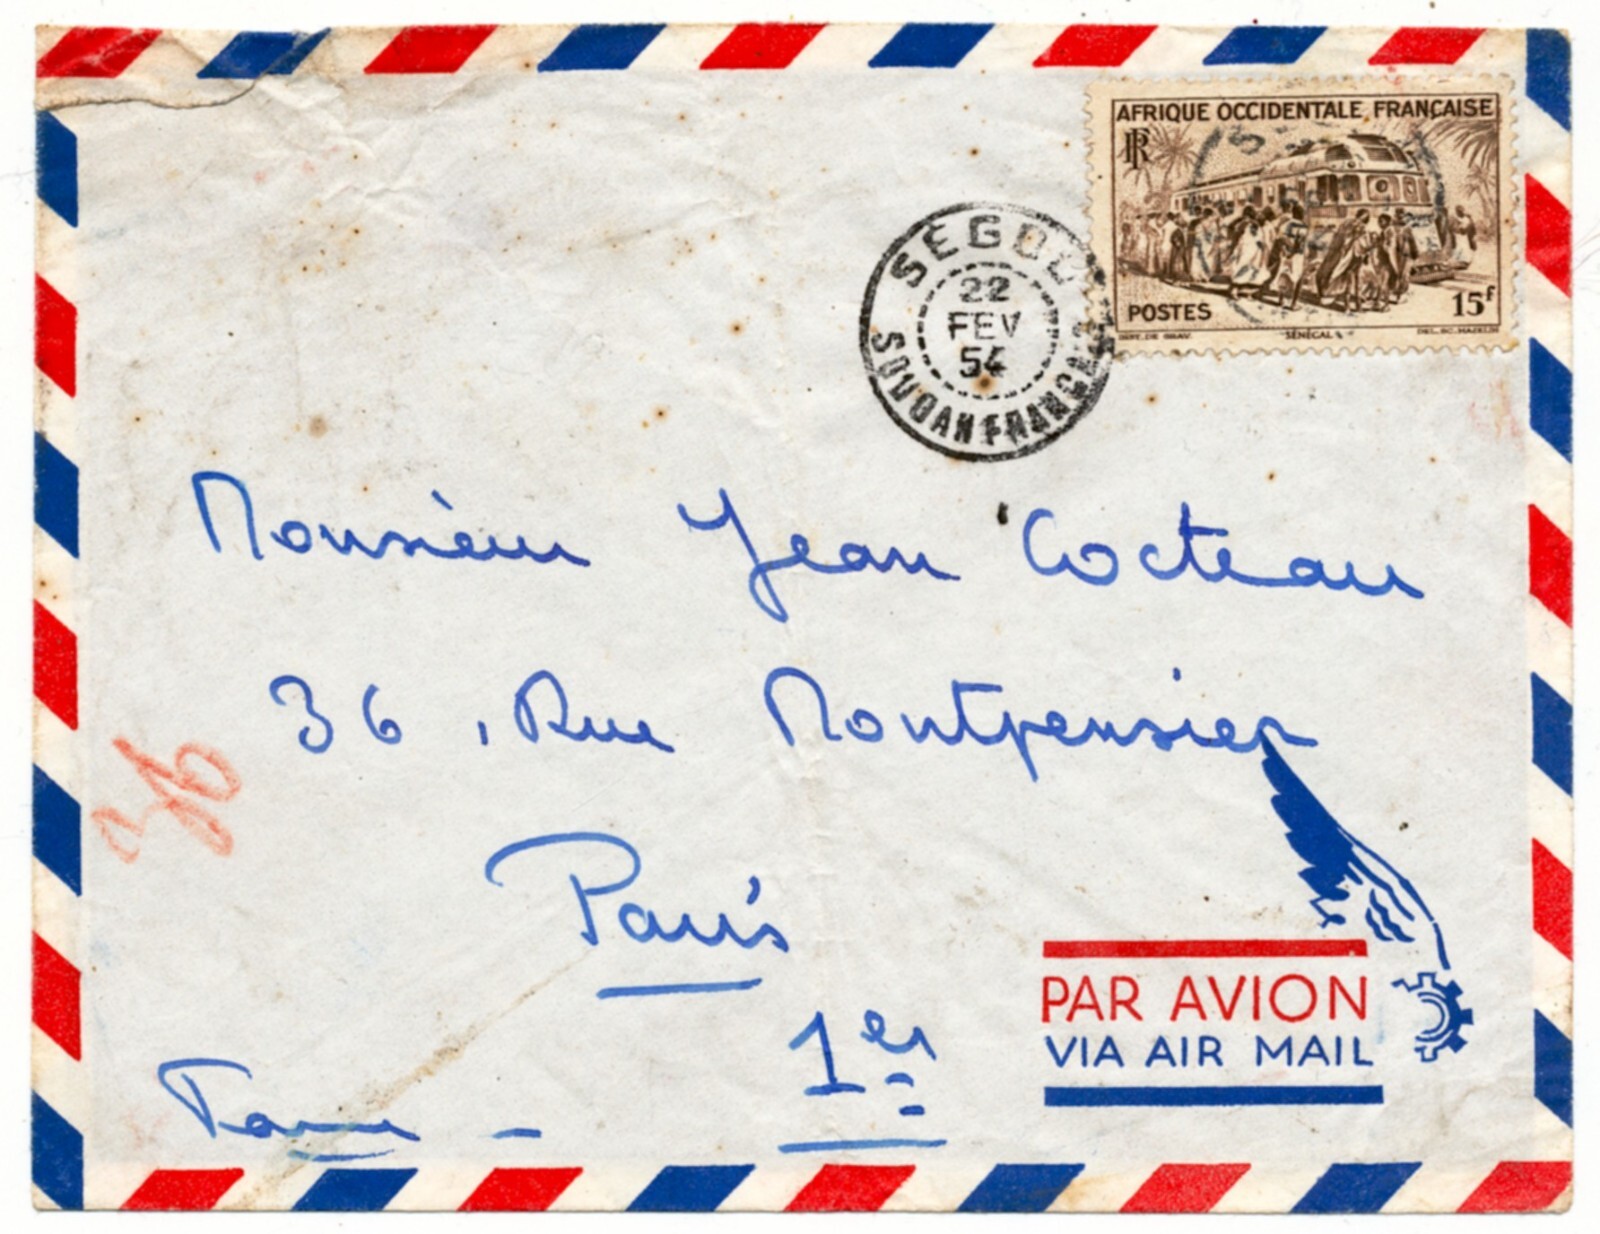 AFRIQUE OCCIDENTALE FRANÇAISE
RF
POSTES
15f
SÉNÉGAL
SEGOU
22
FEV
54
SOUDAN FRANÇAIS
Monsieur Jean Cocteau
36, Rue Montpensier
Paris
1er
36
PAR AVION
VIA AIR MAIL